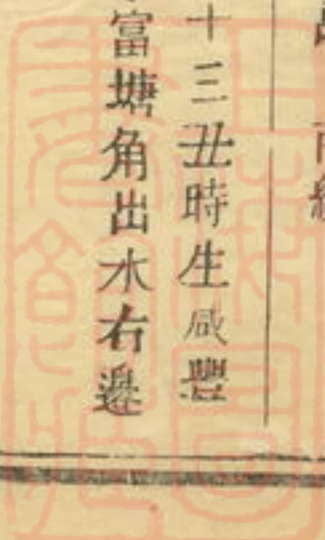 十三丑時生咸豐
富塘角出水右邊